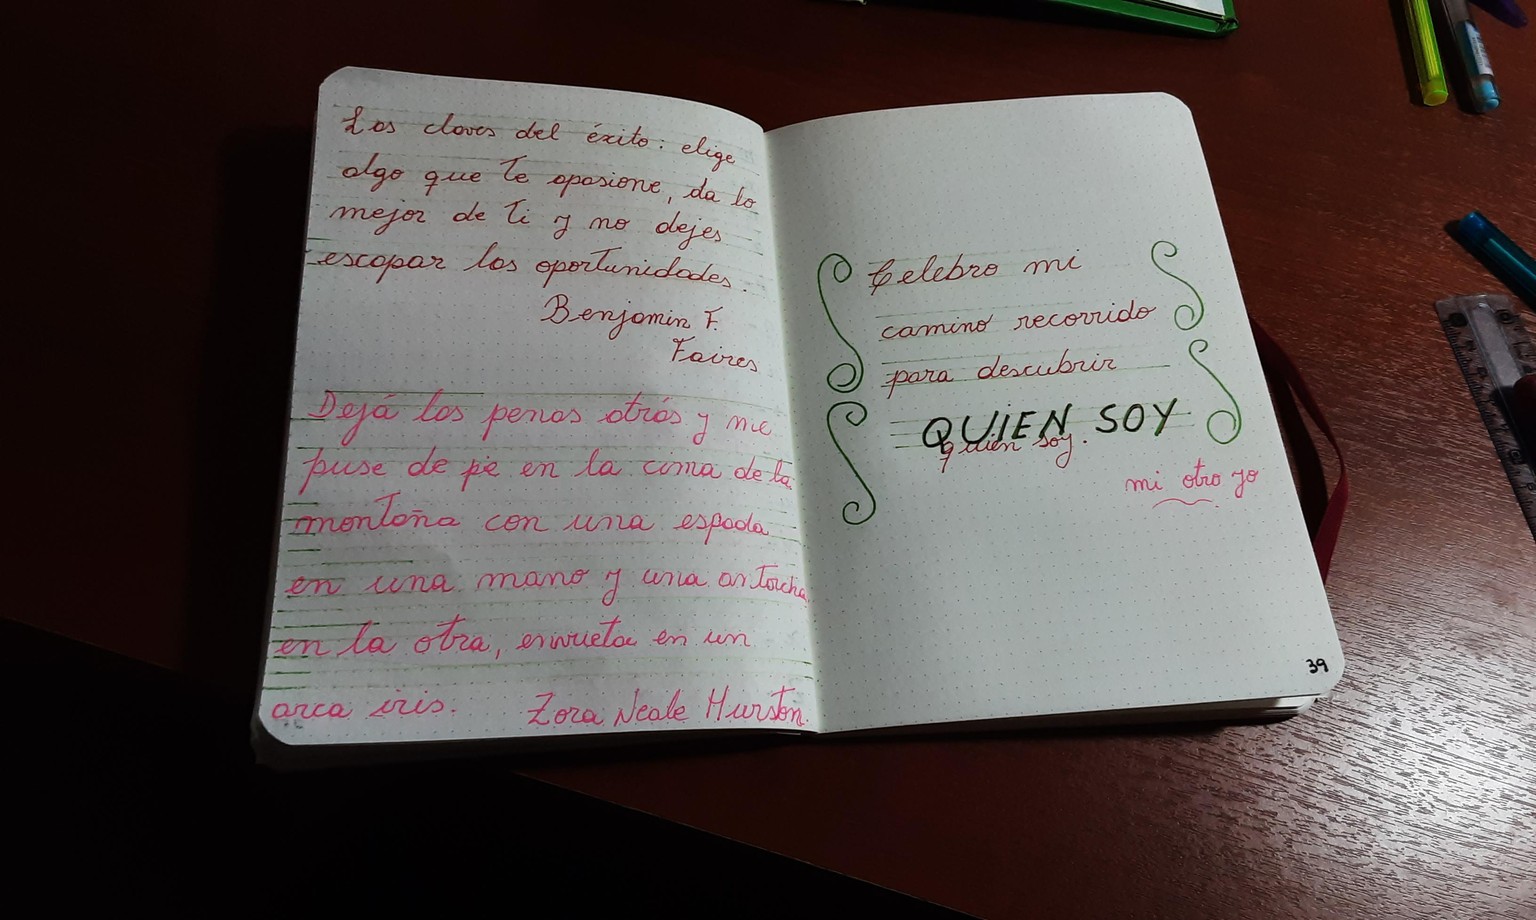 Las claves del éxito: elige
algo que te apasione, da lo
mejor de ti y no dejes
escapar las oportunidades.
Benjamin F.
Faires
Dejá las penas atrás y me
puse de pie en la cima de la
montaña con una espada
en una mano y una antorcha
en la otra, envuelta en un
arca iris. Zora Neale Hurston.
Celebro mi
camino recorrido
para descubrir
QUIEN SOY
quien soy.
mi otro yo
39